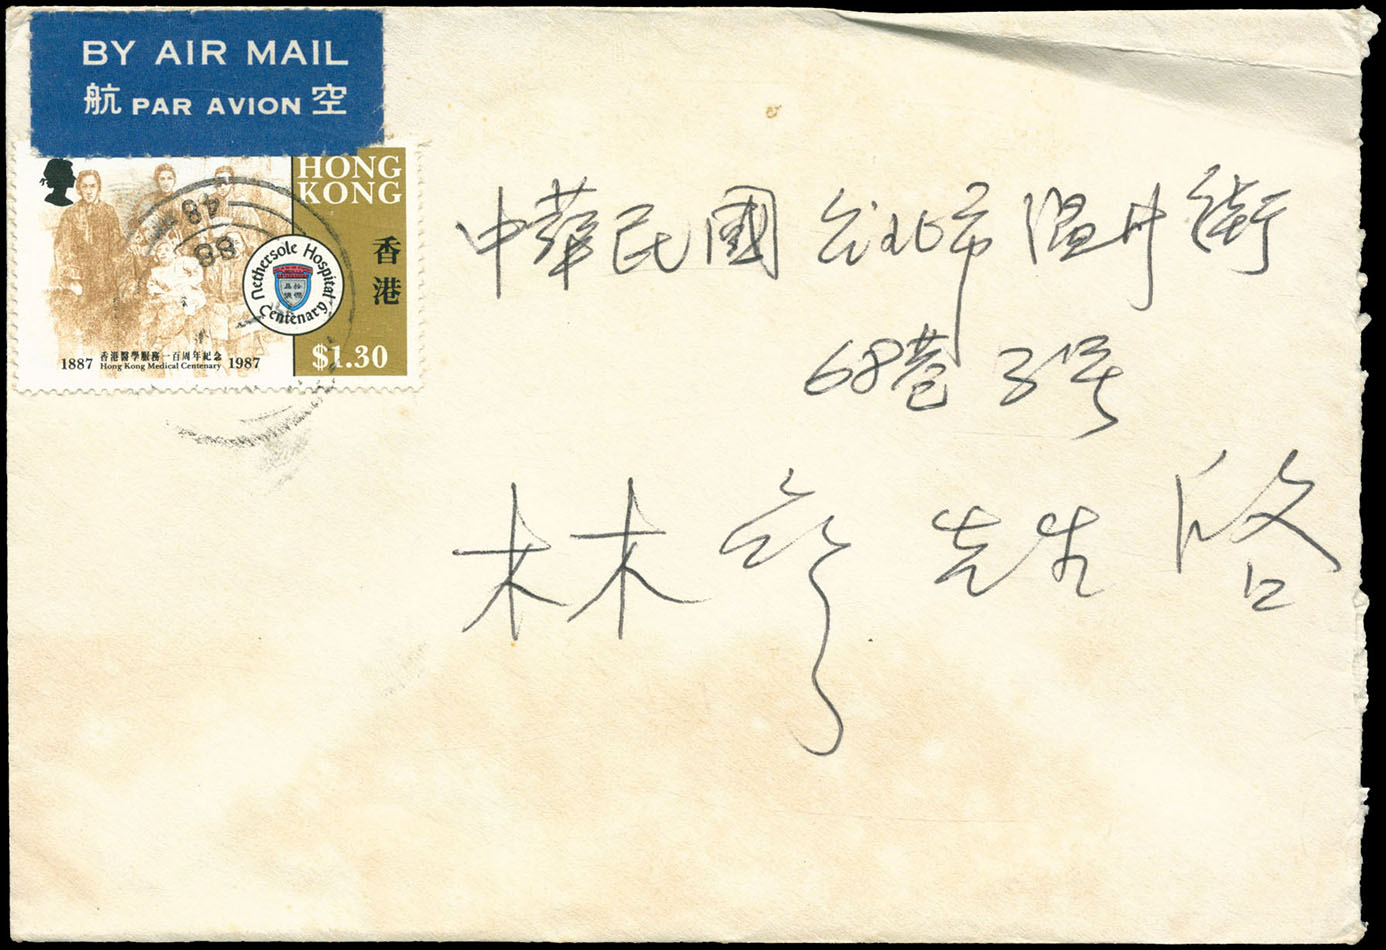 BY AIR MAIL
航 PAR AVION 空
HONG
KONG
香港
Nethersole Hospital
Centenary
$1.30
1887 香港醫學服務一百周年紀念 1987
Hong Kong Medical Centenary
48
88
中華民國 台北市 温州街
68巷 3号
林 先生 啟